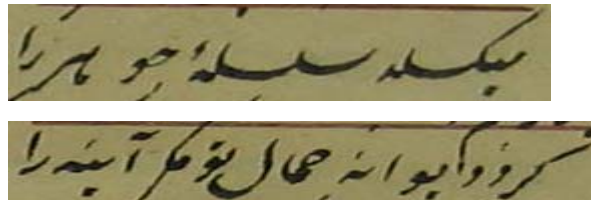 میکسلد سلسلهٔ جوهر را
کرد دیوانه جمال تو مکر آینه را